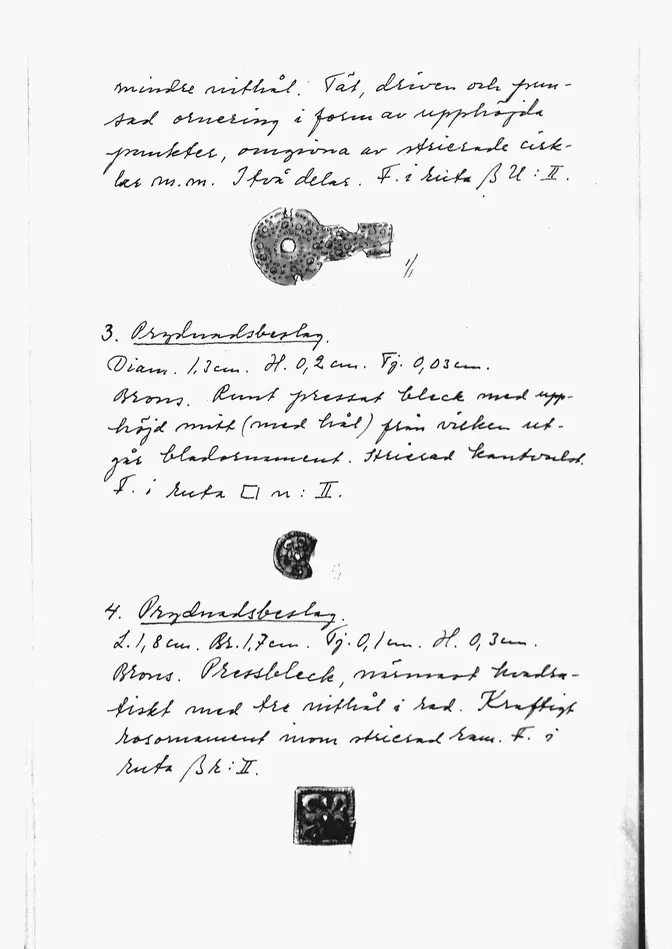 mindre nithål. Tät, driven och pun-
sad ornering i form av upphöjda
punkter, omgivna av strierade cirk-
lar m.m. I två delar. F. i ruta β U : II.
1/1
3. Prydnadsbeslag.
Diam. 1,3 cm. H. 0,2 cm. Tj. 0,03 cm.
Brons. Runt pressat bleck med upp-
höjd mitt (med hål) från vilken ut-
går bladornament. Strierad kantvulst.
F. i ruta □ n : II.
1/1
4. Prydnadsbeslag.
L. 1,8 cm. Br. 1,7 cm. Tj. 0,1 cm. H. 0,3 cm.
Brons. Pressbleck, närmast kvadra-
tiskt med tre nithål i rad. Kraftigt
rosornament inom strierad ram. F. i
ruta β k : II.